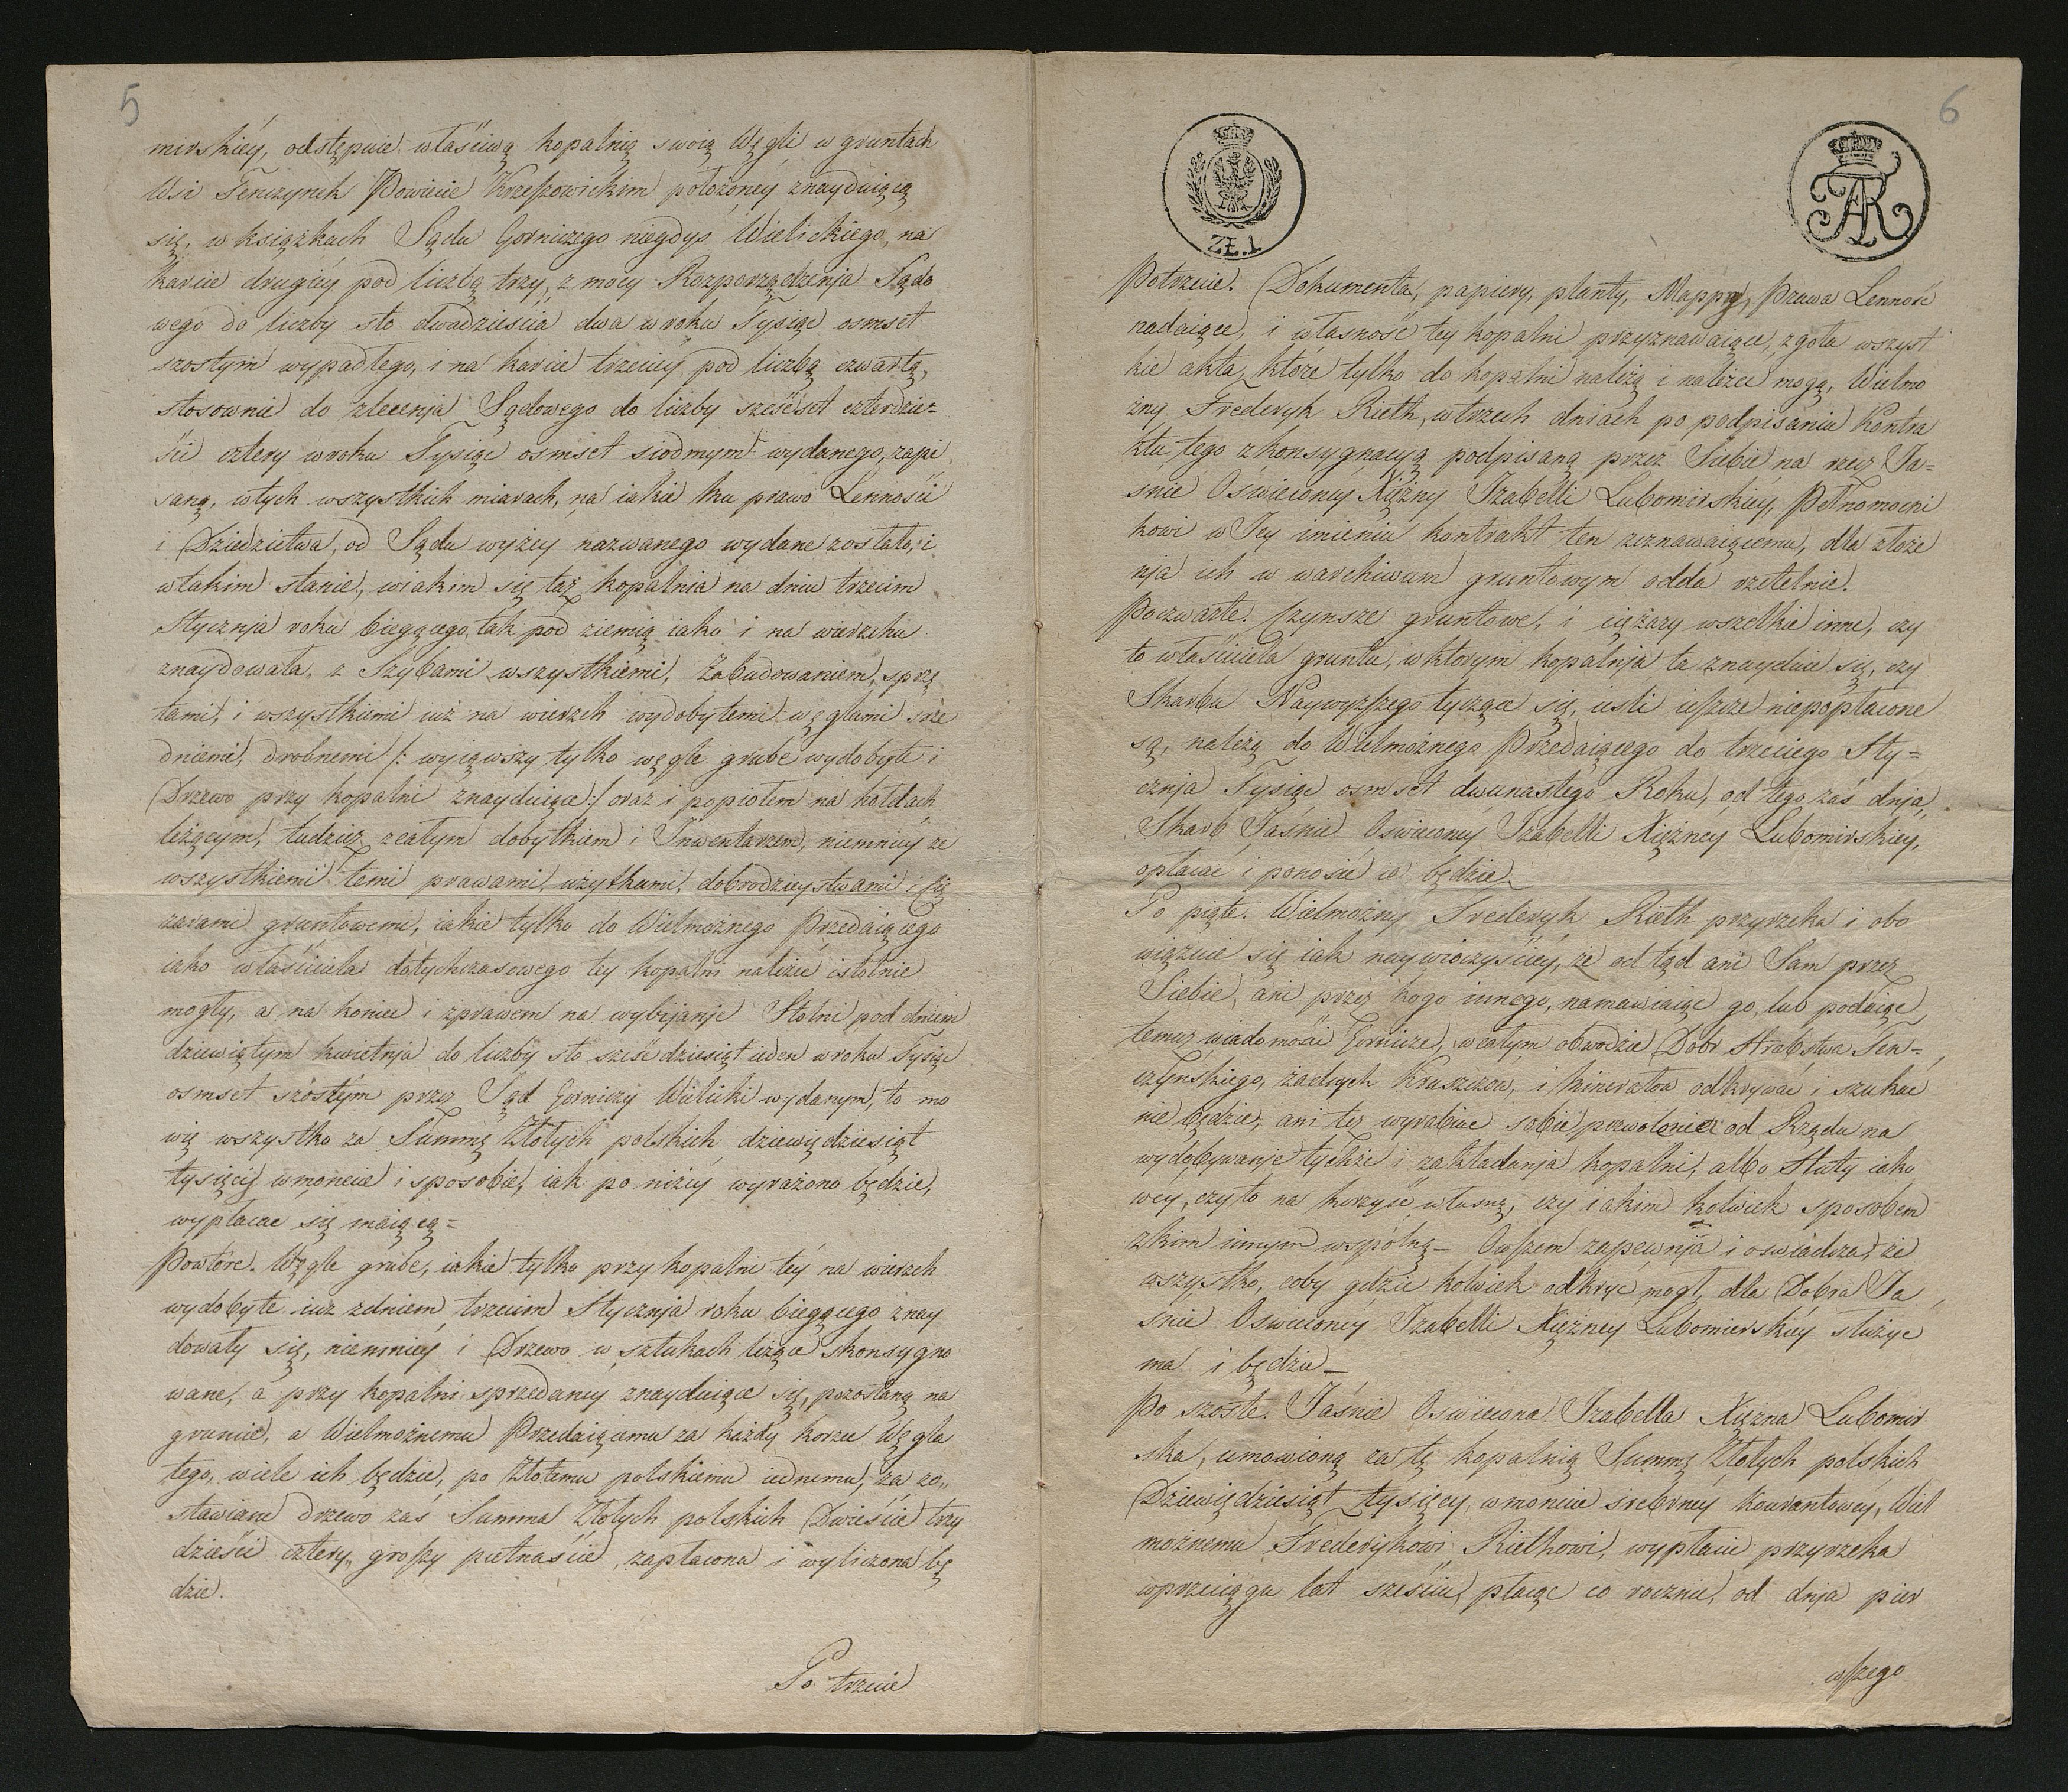 5
mirskiéy, odstępuie właściwą kopalnią swoią Węgli w gruntach
Wsi Tenczynek Powiecie Krzeszowickim położoney znayduiącą
się, w książkach Sądu Gorniczego niegdyś Wielickiego, na
karcie drugiéy pod liczbą trzy, z mocy Rozporządzenja Sądo
wego do liczby sto dwadzieścia dwa w roku Tysiąc osmset
szostym wypadłego, i na karcie trzeciey pod liczbą czwartą,
stosownie do zlecenja Sądowego do liczby sześćset czterdzie=
ści cztery w roku Tysiąc osmset siodmym wydanego, zapi
saną, w tych wszystkich miarach, na iakie ku prawo Lenności
i Dziedzictwa, od Sądu wyżey nazwanego wydane zostało, i
w takim stanie, w iakim się taż kopalnia na dniu trzecim
Stycznja roku bieżącego, tak pod ziemią iako i na wierzchu
znaydowała, z Szybami wszystkiemi, Zabudowaniem, sprzę
tami, i wszystkiemi iuż na wierzch wydobytemi węglami śrze
dniemi, drobnemi /: wyiąwszy tylko węgle grube wydobyte i
Drzewo przy kopalni znayduiące :/ oraz i popiołem na hołdach
leżącym, tudzież z całym dobytkiem i Inwentarzem, niemniey ze
wszystkiemi temi prawami, użytkami, dobrodzieystwami i Cię
żarami gruntowemi, iakie tylko do Wielmożnego Przedaiącego
iako właściciela dotychczasowego tey kopalni należeć istotnie
mogły, a na koniec i z prawem na wybijanje Stolni pod dniem
dziewiątym kwietnja do liczby sto sześćdziesiąt ieden w roku Tysiąc
osmset szóstym przez Sąd Gorniczy Wielicki wydanym, to mo
wię wszystko za Summę Złotych polskich dziewięćdziesiąt
tysięcy w monecie i sposobie, iak po niżéy wyrażono będzie,
wypłacac się maiącą =
Powtóre. Węgle grube, iakie tylko przy kopalni téy na wierzch
wydobyte iuż z dniem trzecim Stycznja roku bieżącego znay
dowały się, niemniey i Drzewo w sztukach leżące skonsygno
wane, a przy kopalni sprzedaney znayduiące się, pozostaną na
gruncie, a Wielmożnemu Przedaiącemu za każdy korzec Węgla
tego, wiele ich będzie, po Złotemu polskiemu iednemu, za zo„
stawiane drzewo zaś Summa Złotych polskich Dwieście trzy
dzieści cztery, groszy pietnaście, zapłacona i wyliczona bę
dzie.
Po trzecie
6
ZŁ. 1.
FAR
Potrzecie. Dokumenta, papiery, planty, Mappy, Prawa Lenność
nadaiące, i własność tey kopalni przyznawaiące, zgoła wszyst
kie akta, które tylko do kopalni należą i należec mogą, Wielmo
żny Frederyk Rieth, w trzech dniach po podpisaniu Kontra
ktu tego z konsygnacyą podpisaną przez Siebie na rzecz Ja=
śnie Oświeconey Xiężny Izabelli Lubomirskiéy, Pełnomocni
kowi w Jey imieniu kontrakt ten zeznawaiącemu, dla złoże
nja ich w warchiwum gruntowym odda rzetelnie.
Poczwarte. Czynsze gruntowe, i ciężary wszelkie inne, czy
to właściciela gruntu, w ktorym kopalnja ta znayduie się, czy
Skarbu Naywyższego tyczące się, iesli ieszcze niepopłacone
są, należą do Wielmożnego Przedaiącego do trzeciego Sty=
cznja Tysiąc osmset dwunastego Roku, od tego zaś dnja,
Skarb Jaśnie Oświeconey Izabelli Xiężney Lubomirskiey,
opłacać i ponosić ie będzie.
Po piąte. Wielmożny Frederyk Rieth przyrzeka i obo
wiązuie się iak naywieczyściéy, że od tąd ani Sam przez
Siebie, ani przez kogo innego, namawiaiąc go, lub podaiąc
temuż wiadomości Gornicze, w całym obwodzie Dobr Hrabstwa Ten=
czynskiego, żadnych kruszczow, i Minerałow odkrywać i szukać
nie będzie, ani też wyrabiac sobie pozwolenia od Rządu na
wydobywanje tychże i zakładanja kopalni, albo Huty iako
wey, czy to na korzyść własną, czy iakim kolwiek sposobem
z kim innym wspólną — Owszem zapewnja i oswiadcza, że
wszystko, coby gdzie kolwiek odkryć mogł, dla Dobra Ja
śnie Oswieconéy Izabelli Xiężney Lubomierskiéy służyc
ma i będzie —
Po szóste. Jaśnie Oswiecona Izabella Xiężna Lubomir
ska, umowioną za tę kopalnią Summę Złotych polskich
Dziewięćdziesiąt tysięcy, w monecie srebrnéy kourantowéy, Wiel
możnemu Frederykowi Riethowi, wypłacić przyrzeka
w przeciągu lat sześciu, płacąc co rocznie, od dnja pier
wszego